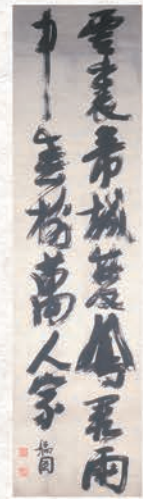 雲裏帝城雙鳳闕雨
中春樹萬人家